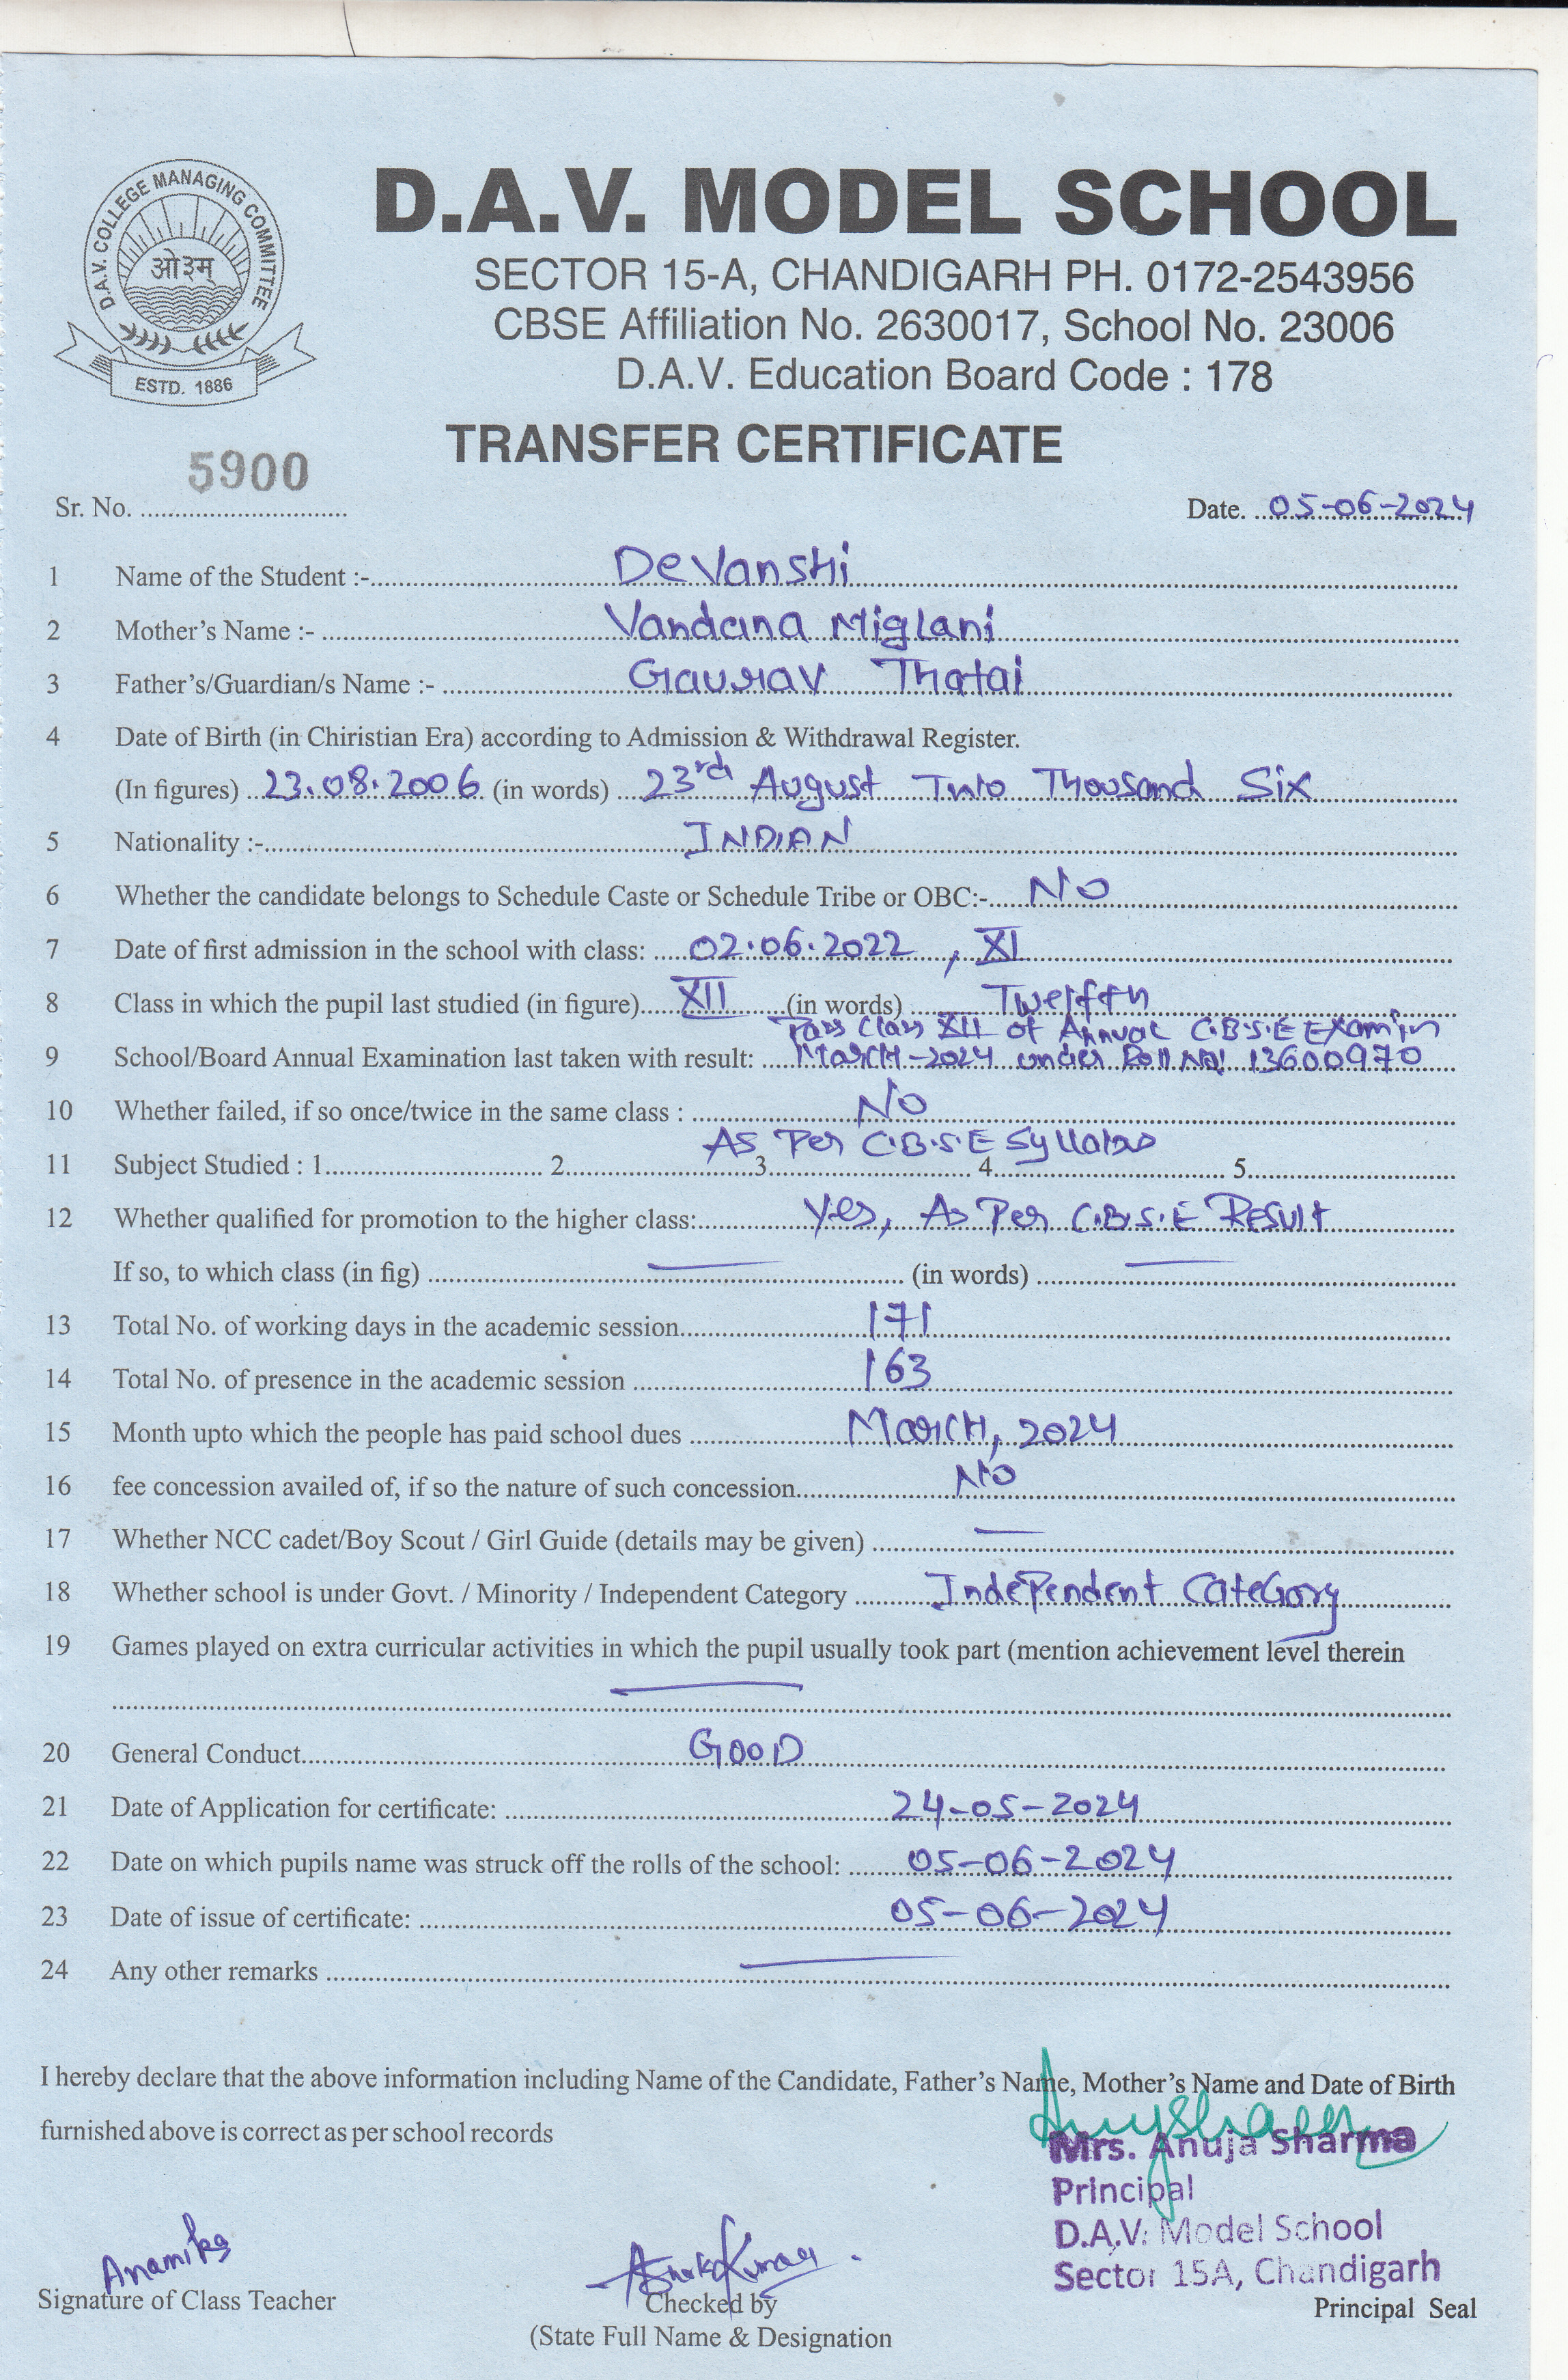 D.A.V. COLLEGE MANAGING COMMITTEE
ओ३म्
ESTD. 1886
D.A.V. MODEL SCHOOL
SECTOR 15-A, CHANDIGARH PH. 0172-2543956
CBSE Affiliation No. 2630017, School No. 23006
D.A.V. Education Board Code : 178
TRANSFER CERTIFICATE
Sr. No. 5900 Date. 05-06-2024
1 Name of the Student :- Devanshi
2 Mother's Name :- Vandana Miglani
3 Father's/Guardian/s Name :- Gaurav Thatai
4 Date of Birth (in Chiristian Era) according to Admission & Withdrawal Register.
(In figures) 23.08.2006 (in words) 23rd August Two Thousand Six
5 Nationality :- INDIAN
6 Whether the candidate belongs to Schedule Caste or Schedule Tribe or OBC:- NO
7 Date of first admission in the school with class: 02.06.2022, XI
8 Class in which the pupil last studied (in figure) XII (in words) Twelfth
Pass Class XII of Annual C.B.S.E Exam in
9 School/Board Annual Examination last taken with result: March-2024 under Roll No! 13600970
10 Whether failed, if so once/twice in the same class : No
As Per C.B.S.E Syllabus
11 Subject Studied : 1 2 3 4 5
12 Whether qualified for promotion to the higher class: Yes, As Per C.B.S.E Result
If so, to which class (in fig) — (in words) —
13 Total No. of working days in the academic session 171
14 Total No. of presence in the academic session 163
15 Month upto which the people has paid school dues March, 2024
16 fee concession availed of, if so the nature of such concession No
17 Whether NCC cadet/Boy Scout / Girl Guide (details may be given) —
18 Whether school is under Govt. / Minority / Independent Category Independent Category
19 Games played on extra curricular activities in which the pupil usually took part (mention achievement level therein
—
20 General Conduct GOOD
21 Date of Application for certificate: 24-05-2024
22 Date on which pupils name was struck off the rolls of the school: 05-06-2024
23 Date of issue of certificate: 05-06-2024
24 Any other remarks —
I hereby declare that the above information including Name of the Candidate, Father's Name, Mother's Name and Date of Birth
furnished above is correct as per school records
Mrs. Anuja Sharma
Principal
D.A.V. Model School
Sector 15A, Chandigarh
Anamika
Signature of Class Teacher
Checked by
Principal Seal
(State Full Name & Designation